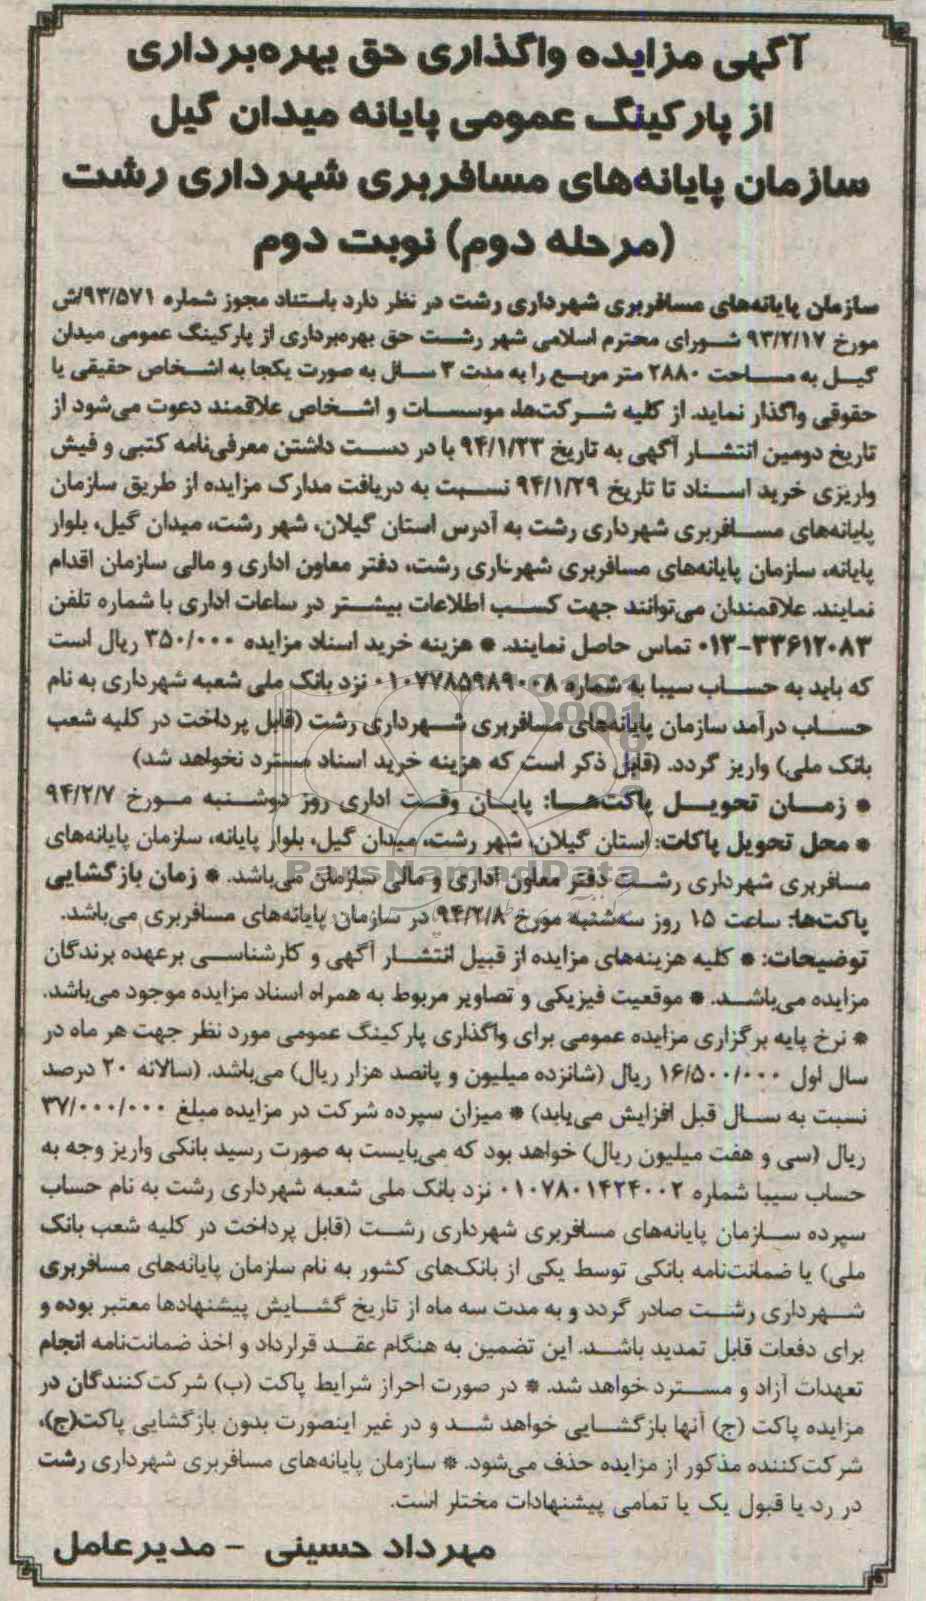 آگهی مزایده واگذاری حق بهره‌برداری
از پارکینگ عمومی پایانه میدان گیل
سازمان پایانه‌های مسافربری شهرداری رشت
(مرحله دوم) نوبت دوم
سازمان پایانه‌های مسافربری شهرداری رشت در نظر دارد باستناد مجوز شماره ۹۳/۵۷۱/ش
مورخ ۹۳/۲/۱۷ شورای محترم اسلامی شهر رشت حق بهره‌برداری از پارکینگ عمومی میدان
گیل به مساحت ۲۸۸۰ متر مربع را به مدت ۳ سال به صورت یکجا به اشخاص حقیقی یا
حقوقی واگذار نماید. از کلیه شرکت‌ها، موسسات و اشخاص علاقمند دعوت می‌شود از
تاریخ دومین انتشار آگهی به تاریخ ۹۴/۱/۲۳ با در دست داشتن معرفی‌نامه کتبی و فیش
واریزی خرید اسناد تا تاریخ ۹۴/۱/۲۹ نسبت به دریافت مدارک مزایده از طریق سازمان
پایانه‌های مسافربری شهرداری رشت به آدرس استان گیلان، شهر رشت، میدان گیل، بلوار
پایانه، سازمان پایانه‌های مسافربری شهرداری رشت، دفتر معاون اداری و مالی سازمان اقدام
نمایند. علاقمندان می‌توانند جهت کسب اطلاعات بیشتر در ساعات اداری با شماره تلفن
۰۱۳-۳۳۶۱۲۰۸۳ تماس حاصل نمایند. * هزینه خرید اسناد مزایده ۳۵۰/۰۰۰ ریال است
که باید به حساب سیبا به شماره ۰۱۰۷۷۸۵۹۸۹۰۰۸ نزد بانک ملی شعبه شهرداری به نام
حساب درآمد سازمان پایانه‌های مسافربری شهرداری رشت (قابل پرداخت در کلیه شعب
بانک ملی) واریز گردد. (قابل ذکر است که هزینه خرید اسناد مسترد نخواهد شد)
* زمان تحویل پاکت‌ها: پایان وقت اداری روز دوشنبه مورخ ۹۴/۲/۷
* محل تحویل پاکات: استان گیلان، شهر رشت، میدان گیل، بلوار پایانه، سازمان پایانه‌های
مسافربری شهرداری رشت دفتر معاون اداری و مالی سازمان می‌باشد. * زمان بازگشایی
پاکت‌ها: ساعت ۱۵ روز سه‌شنبه مورخ ۹۴/۲/۸ در سازمان پایانه‌های مسافربری می‌باشد.
توضیحات: * کلیه هزینه‌های مزایده از قبیل انتشار آگهی و کارشناسی برعهده برندگان
مزایده می‌باشد. * موقعیت فیزیکی و تصاویر مربوط به همراه اسناد مزایده موجود می‌باشد.
* نرخ پایه برگزاری مزایده عمومی برای واگذاری پارکینگ عمومی مورد نظر جهت هر ماه در
سال اول ۱۶/۵۰۰/۰۰۰ ریال (شانزده میلیون و پانصد هزار ریال) می‌باشد. (سالانه ۲۰ درصد
نسبت به سال قبل افزایش می‌یابد) * میزان سپرده شرکت در مزایده مبلغ ۳۷/۰۰۰/۰۰۰
ریال (سی و هفت میلیون ریال) خواهد بود که می‌بایست به صورت رسید بانکی واریز وجه به
حساب سیبا شماره ۰۱۰۷۸۰۱۴۲۴۰۰۲ نزد بانک ملی شعبه شهرداری رشت به نام حساب
سپرده سازمان پایانه‌های مسافربری شهرداری رشت (قابل پرداخت در کلیه شعب بانک
ملی) یا ضمانت‌نامه بانکی توسط یکی از بانک‌های کشور به نام سازمان پایانه‌های مسافربری
شهرداری رشت صادر گردد و به مدت سه ماه از تاریخ گشایش پیشنهادها معتبر بوده و
برای دفعات قابل تمدید باشد. این تضمین به هنگام عقد قرارداد و اخذ ضمانت‌نامه انجام
تعهدات آزاد و مسترد خواهد شد. * در صورت احراز شرایط پاکت (ب) شرکت‌کنندگان در
مزایده پاکت (ج) آنها بازگشایی خواهد شد و در غیر اینصورت بدون بازگشایی پاکت(ج)،
شرکت‌کننده مذکور از مزایده حذف می‌شود. * سازمان پایانه‌های مسافربری شهرداری رشت
در رد یا قبول یک یا تمامی پیشنهادات مختلر است.
مهرداد حسینی - مدیرعامل
ParsNamadData